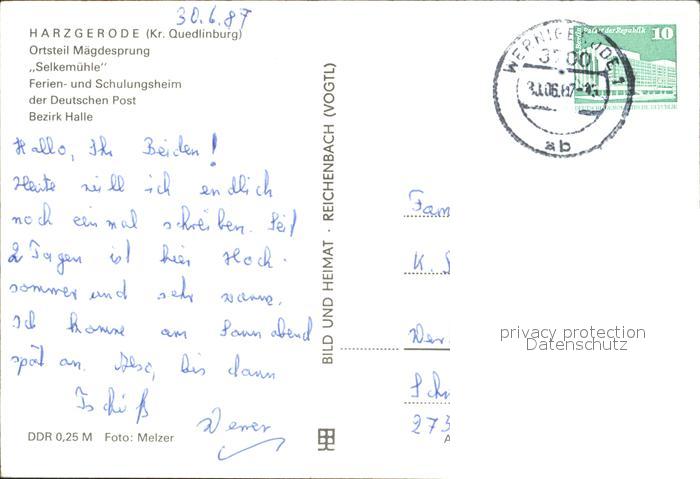 30.6.87
HARZGERODE (Kr. Quedlinburg)
Ortsteil Mägdesprung
„Selkemühle"
Ferien- und Schulungsheim
der Deutschen Post
Bezirk Halle
Hallo, Ihr Beiden!
Heute will ich endlich
noch einmal schreiben. Seit
2 Tagen ist hier Hoch-
sommer und sehr warm.
Ich komme am Sonnabend
spät an. Also, bis dann
Tschüß
DDR 0,25 M Foto: Melzer
BILD UND HEIMAT · REICHENBACH (VOGTL)
WERNIGERODE 1
ab
Palast der Republik 10
DEUTSCHE DEMOKRATISCHE REPUBLIK
Fam
K.
Wer
Sch
273
privacy protection
Datenschutz